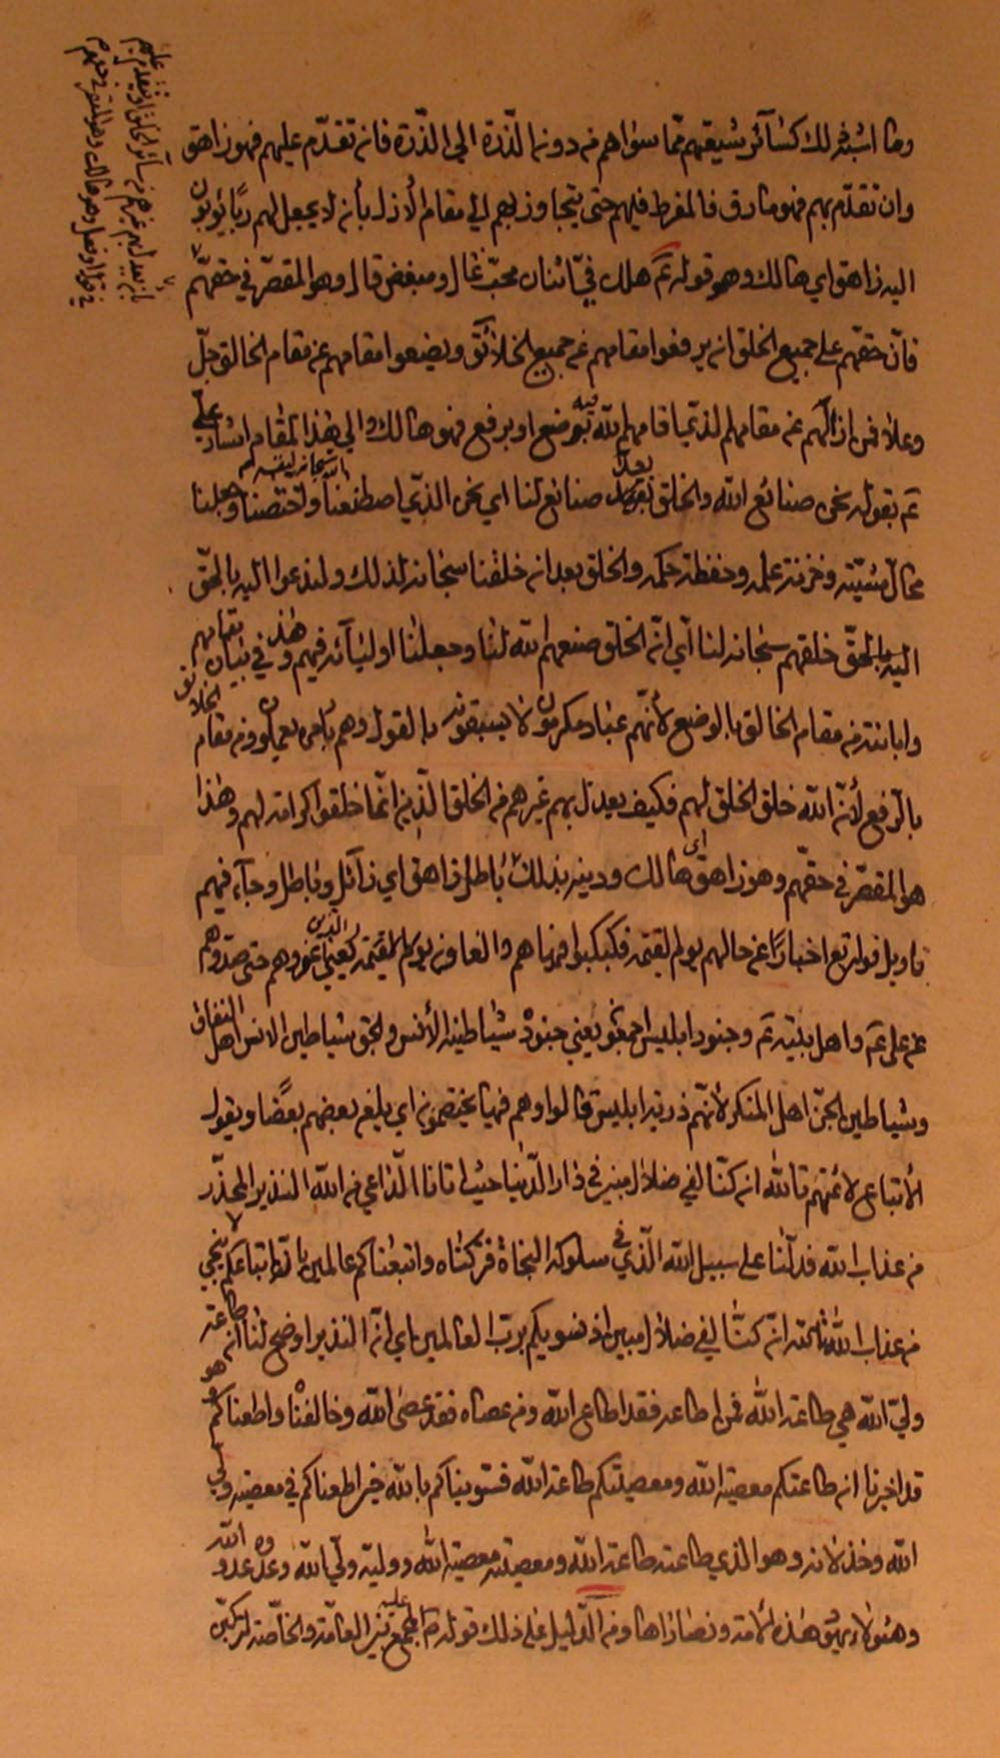 وما اشبه ذلك كسائر شيعتهم مما سواهم من دون الذرة الى الذرة فان تقدم عليهم فهو زاهق
وان تقدم بهم فهو مارق فالمفرط فيهم حتى يتجاوز بهم الى مقام الازل بان لا يجعل لهم ربا يؤبون
اليه زاهق اي هالك وهو قوله ع هلك فيّ اثنان محب غال ومبغض قال وهو المقصر في حقهم
فان حقهم على جميع الخلق ان يرفعوا مقامهم عن جميع الخلائق ويضعوا مقامهم عن مقام الخالق جل
وعلا فمن ازالهم عن مقامهم الذي اقامهم الله فيه بوضع او برفع فهو هالك والى هذا المقام اشار علي
ع بقوله نحن صنائع الله والخلق بعد صنائع لنا اي نحن الذي اصطنعنا سبحانه لنفسه واختصنا وجعلنا
محال مشيته وخزنة علمه وحفظة حكمه والخلق بعد ان خلقنا سبحانه لذلك ولندعوا اليه بالحق
اليه بالحق خلقهم سبحانه لنا اي ان الخلق صنعهم الله لنا وجعلنا اوليائه فيهم وهذا في بيان مقامهم
وابانته من مقام الخالق بالوضع لانهم عباد مكرمون لا يسبقونه بالقول وهم بامره يعملون ومن مقام الخلائق
بالرفع لان الله خلق الخلق لهم فكيف يعدل بهم غيرهم من الخلق الذين انما خلقوا كرامة لهم وهذا
هو المقصر في حقهم وهو زاهق اي هالك ودينه بذلك باطل زاهق اي زائل وباطل وجاء فيهم
تاويل قوله تع اخبارا عن حالهم يوم القيمة فكبكبوا فيها هم والغاون يوم القيمة يعني الذين اغووهم حتى صدوهم
عن علي ع واهل بيته ع وجنود ابليس اجمعون يعني جنود شياطين الانس والجن شياطين الانس اهل النفاق
وشياطين الجن اهل المنكر لانهم ذرية ابليس قالوا وهم فيها يختصمون اي يلعن بعضهم بعضا ويقول
الاتباع لائمتهم تالله ان كنا لفي ضلال مبين في دار الدنيا حيث اتانا الداعي من الله النذير المحذر
من عذاب الله فدلنا على سبيل الله الذي في سلوكه النجاة فتركناه واتبعناكم عالمين بان اتباعكم لا ينجي
من عذاب الله تالله ان كنا لفي ضلال مبين اذ نسويكم برب العالمين اي ان النذير اوضح لنا ان طاعة
ولي الله هي طاعة الله فمن اطاعه فقد اطاع الله ومن عصاه فقد عصى الله وخالفناه واطعناكم وهو
قد اخبرنا ان طاعتكم معصية الله ومعصيتكم طاعة الله فسويناكم بالله حين اطعناكم في معصية ولي
الله وخذلانه وهو الذي طاعته طاعة الله ومعصيته معصية الله ووليه ولي الله وعدوه عدو الله
وهؤلاء هذه الامة ونصاراها ومن الدليل على ذلك قوله المجمع عليه بين العامة والخاصة لتركبن